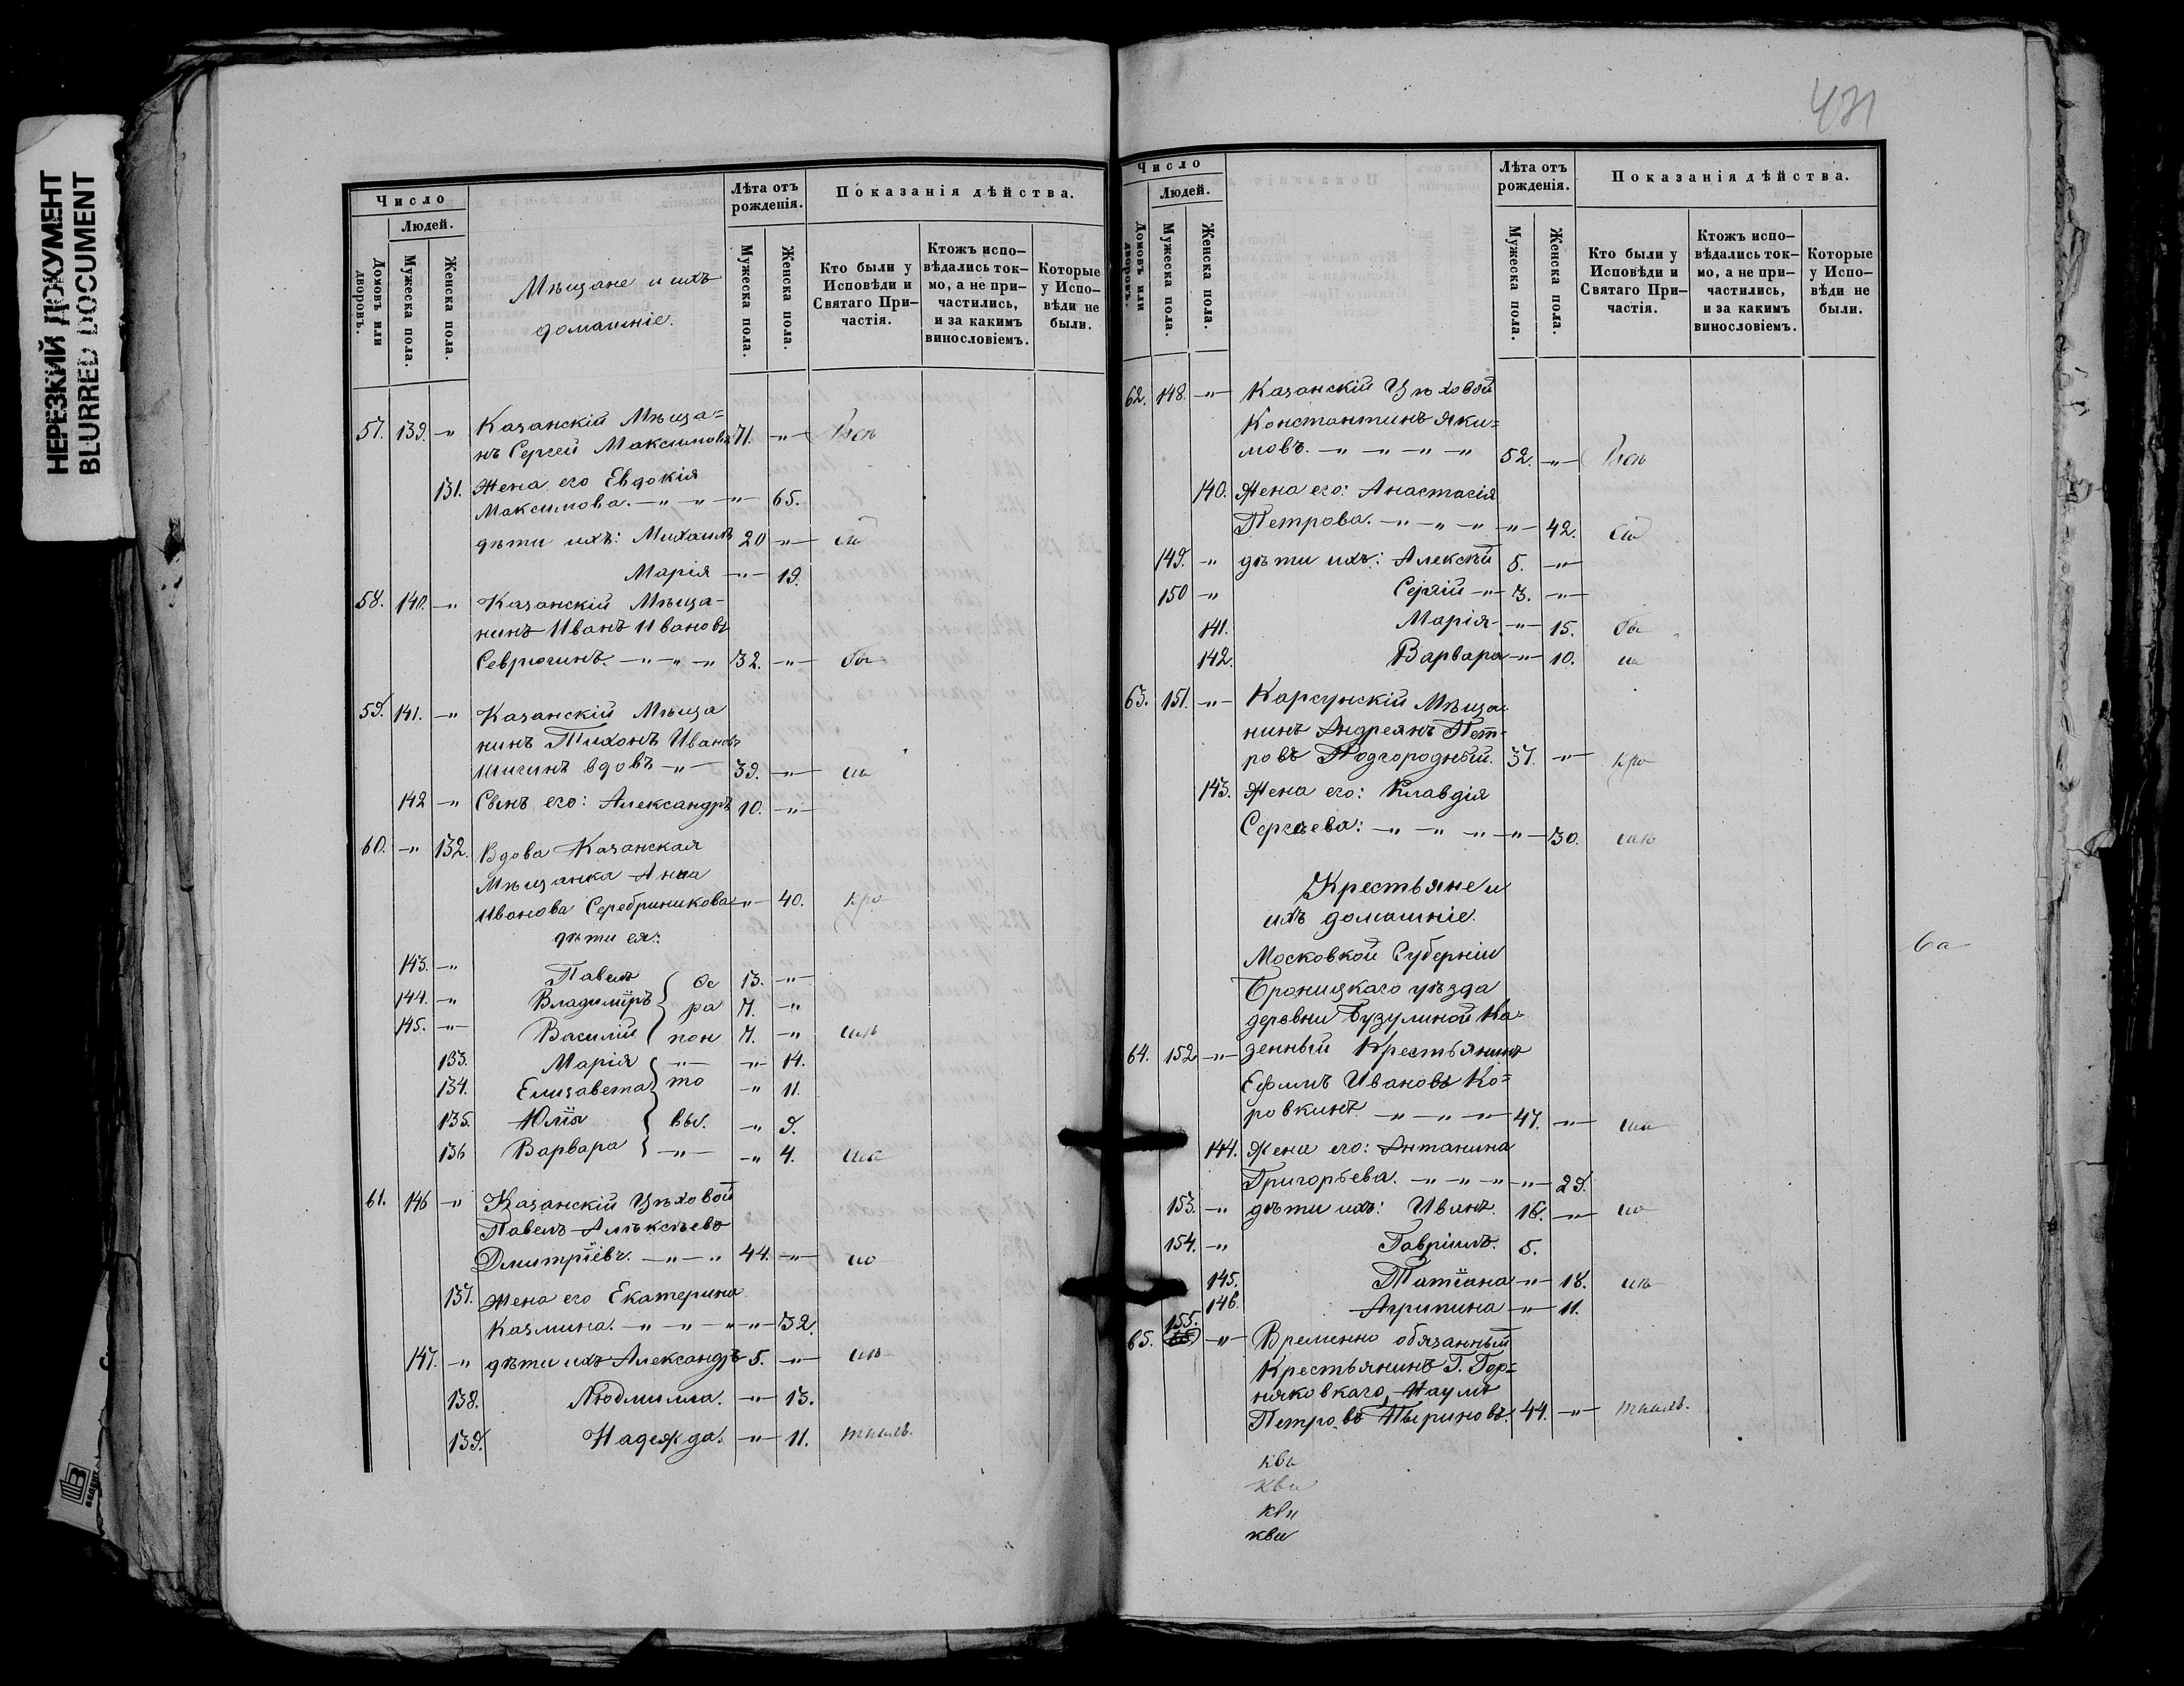 НЕРЕЗКИЙ ДОКУМЕНТ
BLURRED DOCUMENT
Число
Людей.
Домовъ или дворовъ.
Мужеска пола.
Женска пола.
Мѣщане и ихъ
домашніе.
Лѣта отъ рожденія.
Мужеска пола.
Женска пола.
Показанія дѣйства.
Кто были у Исповѣди и Святаго Причастія.
Ктожъ исповѣдались токмо, а не причастились, и за какимъ винословіемъ.
Которые у Исповѣди не были.
57. 139. -"- Казанскій Мѣща=
нъ Сергей Максимовъ 71. -"-
131. Жена его Евдокія
Максимова. -"- -"- -"- 65.
дѣти ихъ: Михаилъ 20 -"-
Марія -"- 19.
58. 140. -"- Казанскій Мѣща-
нинъ Иванъ Ивановъ
Севрюгинъ. -"- -"- 32. -"-
59. 141. -"- Казанскій Мѣща
нинъ Тихонъ Ивановъ
Шигинъ вдовъ -"- 39. -"-
142 -"- Сынъ его: Александръ 10. -"-
60. -"- 132. Вдова Казанская
Мѣщанка Анна
Иванова Серебриникова -"- 40. кро
дѣти ея:
143. -"- Павелъ Се 13. -"-
144. -"- Владиміръ ра 7. -"-
145. -"- Василій пон 7. -"-
133. Марія -"- -"- 14.
134. Елизавета то -"- 11.
135. Юлія вы. -"- 9.
136 Варвара -"- -"- 4.
61. 146 -"- Казанскій Цѣховой
Павелъ Алѣксѣевъ
Дмитріевъ. -"- -"- 44. -"-
137. Жена его Екатерина
Казмина. -"- -"- -"- 32.
147. -"- дѣти ихъ Александръ 5. -"-
138. Людмилла. -"- 13.
139. Надежда. -"- 11.
431
Число
Людей.
Домовъ или дворовъ.
Мужеска пола.
Женска пола.
Лѣта отъ рожденія.
Мужеска пола.
Женска пола.
Показанія дѣйства.
Кто были у Исповѣди и Святаго Причастія.
Ктожъ исповѣдались токмо, а не причастились, и за какимъ винословіемъ.
Которые у Исповѣди не были.
62. 148. -"- Казанскій Цѣховой
Константинъ Яки=
мовъ. -"- -"- -"- 52. -"-
140. Жена его: Анастасія
Петрова. -"- -"- -"- -"- 42.
149. -"- дѣти ихъ: Алексѣй 5. -"-
150 -"- Сергій -"- 3. -"-
141. Марія -"- 15.
142. Варвара -"- 10.
63. 151. -"- Карсунскій Мѣща-
нинъ Андреянъ Пет-
ровъ Подгородный. 37. -"- кро
143. Жена его: Клавдія
Сергѣева: -"- -"- -"- -"- 30.
Крестьяне и
ихъ домашніе.
Московкой Губерніи
Броницкаго уѣзда
деревни Бузулиной Ка-
64. 152 -"- зенный Крестьянинъ
Ефимъ Ивановъ Ко=
ровкинъ -"- -"- -"- 47. -"-
144. Жена его: Антанина
Григорьева. -"- -"- -"- -"- 29.
153. -"- дѣти ихъ: Иванъ. 16. -"-
154. -"- Гавріилъ. 5.
145. Татіана -"- 18.
146. Агрипина -"- 11.
155.
65. -"- Временно обязанный
Крестьянинъ Г. Гор=
няковкаго, Наумъ
Петровъ 44. -"-